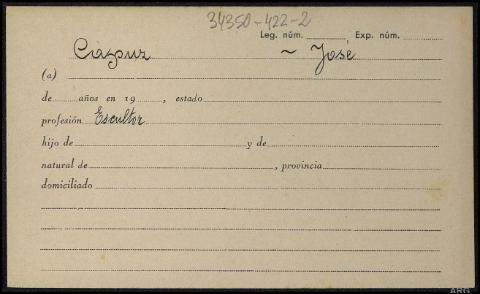 34350-422-2
Leg. núm. , Exp. núm.
Cápuz ~ José
(a)
de años en 19 , estado
profesión Escultor
hijo de y de
natural de , provincia
domiciliado
ARG